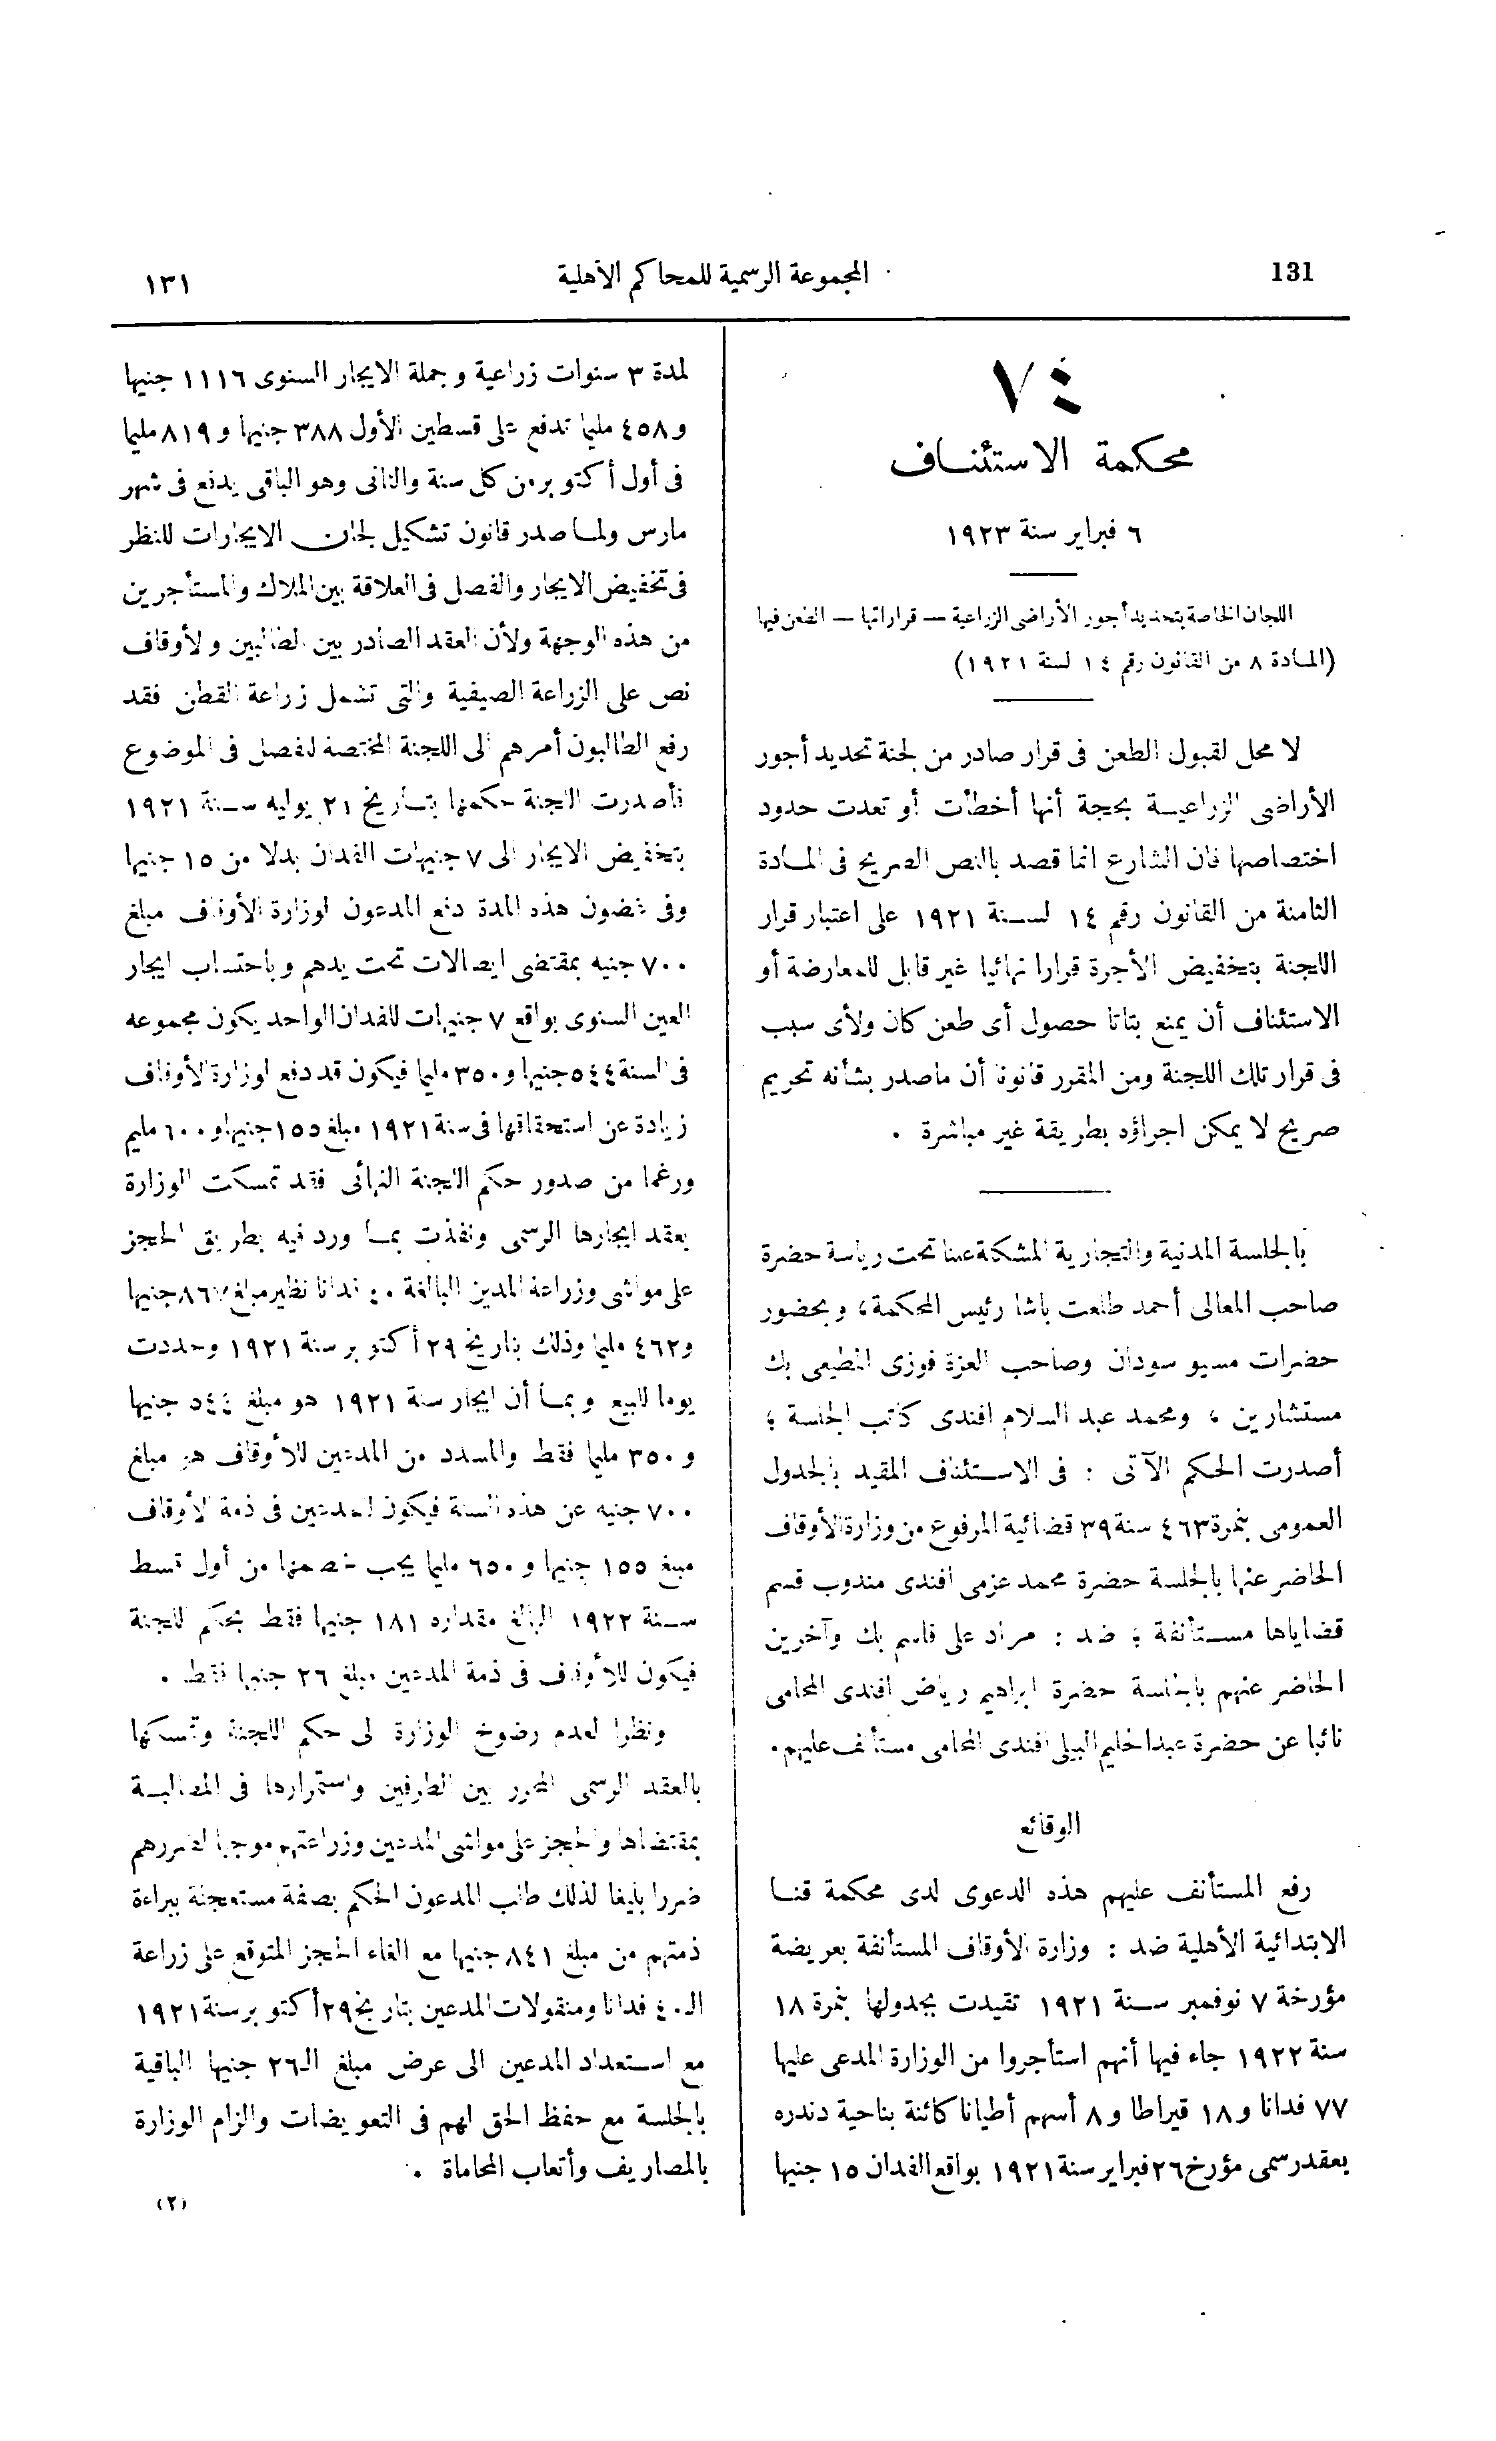 131
المجموعة الرسمية للمحاكم الأهلية
١٣١
٧٤
محكمة الاستئناف
٦ فبراير سنة ١٩٢٣
اللجان الخاصة بتحديد أجور الأراضى الزراعية — قراراتها — الطعن فيها
(المادة ٨ من القانون رقم ١٤ لسنة ١٩٢١)
لا محل لقبول الطعن فى قرار صادر من لجنة تحديد أجور
الأراضى الزراعية بحجة أنها أخطأت أو تعدت حدود
اختصاصها فان الشارع انما قصد بالنص الصريح فى المادة
الثامنة من القانون رقم ١٤ لسنة ١٩٢١ على اعتبار قرار
اللجنة بتخفيض الأجرة قرارا نهائيا غير قابل للمعارضة أو
الاستئناف أن يمنع بتاتا حصول أى طعن كان ولأى سبب
فى قرار تلك اللجنة ومن المقرر قانونا أن ماصدر بشأنه تحريم
صريح لا يمكن اجراؤه بطريقة غير مباشرة .
بالجلسة المدنية والتجارية المشكلة علنا تحت رياسة حضرة
صاحب المعالى أحمد طلعت باشا رئيس المحكمة، وبحضور
حضرات مسيو سودان وصاحب العزة فوزى المطيعى بك
مستشارين ، ومحمد عبد السلام افندى كاتب الجلسة ؛
أصدرت الحكم الآتى : فى الاستئناف المقيد بالجدول
العمومى بنمرة ٤٦٣ سنة ٣٩ قضائية المرفوع من وزارة الأوقاف
الحاضر عنها بالجلسة حضرة محمد عزمى افندى مندوب قسم
قضاياها مستأنفة ؛ ضد : مراد على قاسم بك وآخرين
الحاضر عنهم بالجلسة حضرة ابراهيم رياض افندى المحامى
نائبا عن حضرة عبد الحليم البيلى افندى المحامى مستأنف عليهم.
الوقائع
رفع المستأنف عليهم هذه الدعوى لدى محكمة قنا
الابتدائية الأهلية ضد : وزارة الأوقاف المستأنفة بعريضة
مؤرخة ٧ نوفمبر سنة ١٩٢١ تقيدت بجدولها بنمرة ١٨
سنة ١٩٢٢ جاء فيها أنهم استأجروا من الوزارة المدعى عليها
٧٧ فدانا و١٨ قيراطا و٨ أسهم أطيانا كائنة بناحية دندره
بعقد رسمى مؤرخ ٢٦ فبراير سنة ١٩٢١ بواقع الفدان ١٥ جنيها
لمدة ٣ سنوات زراعية وجملة الايجار السنوى ١١١٦ جنيها
و٤٥٨ مليما تدفع على قسطين الأول ٣٨٨ جنيها و٨١٩ مليما
فى أول أكتوبر من كل سنة والثانى وهو الباقى يدفع فى شهر
مارس ولما صدر قانون تشكيل لجان الايجارات للنظر
فى تخفيض الايجار والفصل فى العلاقة بين الملاك والمستأجرين
من هذه الوجهة ولأن العقد الصادر بين الطالبين والأوقاف
نص على الزراعة الصيفية والتى تشمل زراعة القطن فقد
رفع الطالبون أمرهم الى اللجنة المختصة لتفصل فى الموضوع
فأصدرت اللجنة حكمها بتاريخ ٢١ يوليه سنة ١٩٢١
بتخفيض الايجار الى ٧ جنيهات الفدان بدلا من ١٥ جنيها
وفى غضون هذه المدة دفع المدعون لوزارة الأوقاف مبلغ
٧٠٠ جنيه بمقتضى ايصالات تحت يدهم وباحتساب ايجار
العين السنوى بواقع ٧ جنيهات للفدان الواحد يكون مجموعه
فى السنة ٥٤٤ جنيها و٣٥٠ مليما فيكون قد دفع لوزارة الأوقاف
زيادة عن استحقاقها فى سنة ١٩٢١ مبلغ ١٥٥ جنيها و٦٠٠ مليم
ورغما من صدور حكم اللجنة النهائى فقد تمسكت الوزارة
بعقد ايجارها الرسمى ونفذت بما ورد فيه بطريق الحجز
على مواشى وزراعة المدين البالغة ٤٠ فدانا نظير مبلغ ٨٦٧ جنيها
و٤٦٢ مليما وذلك بتاريخ ٢٩ أكتوبر سنة ١٩٢١ وحددت
يوما للبيع وبما أن ايجار سنة ١٩٢١ هو مبلغ ٥٤٤ جنيها
و٣٥٠ مليما فقط والمسدد من المدعين للأوقاف هو مبلغ
٧٠٠ جنيه عن هذه السنة فيكون للمدعين فى ذمة الأوقاف
مبلغ ١٥٥ جنيها و٦٥٠ مليما يجب خصمها من أول قسط
سنة ١٩٢٢ البالغ مقداره ١٨١ جنيها فقط بحكم اللجنة
فيكون للأوقاف فى ذمة المدعين مبلغ ٢٦ جنيها فقط .
ونظرا لعدم رضوخ الوزارة الى حكم اللجنة وتمسكها
بالعقد الرسمى المحرر بين الطرفين واستمرارها فى المطالبة
بمقتضاها والحجز على مواشى المدعين وزراعتهم موجبا لضررهم
ضررا بليغا لذلك طلب المدعون الحكم بصفة مستعجلة ببراءة
ذمتهم من مبلغ ٨٤١ جنيها مع الغاء الحجز المتوقع على زراعة
الـ ٤٠ فدانا ومنقولات المدعين بتاريخ ٢٩ أكتوبر سنة ١٩٢١
مع استعداد المدعين الى عرض مبلغ الـ ٢٦ جنيها الباقية
بالجلسة مع حفظ الحق لهم فى التعويضات والزام الوزارة
بالمصاريف وأتعاب المحاماة .
(٢)